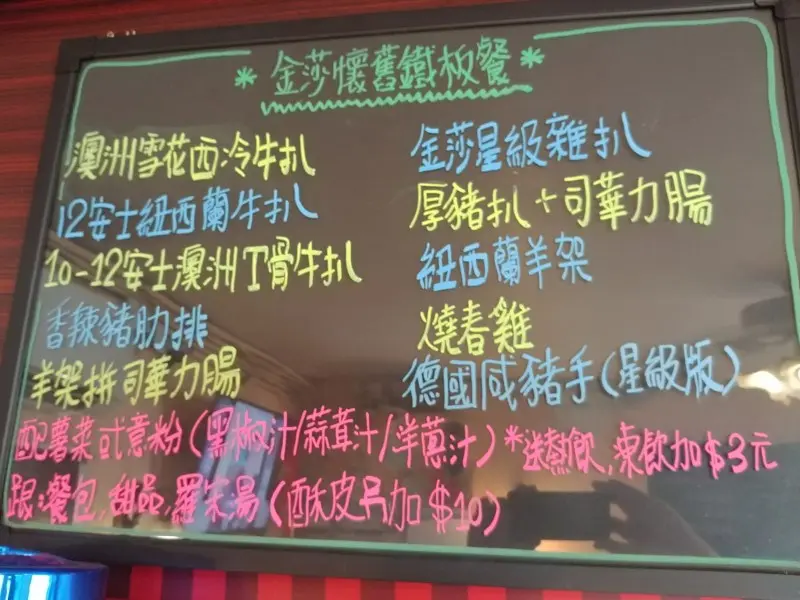 *金莎懷舊鐵板餐*
澳洲雪花西冷牛扒
12安士紐西蘭牛扒
10-12安士澳洲T骨牛扒
香辣豬肋排
羊架拼司華力腸
金莎星級雜扒
厚豬扒+司華力腸
紐西蘭羊架
燒春雞
德國咸豬手(星級版)
配薯菜或意粉(黑椒汁/蒜茸汁/洋蔥汁)*送熱飲,凍飲加$3元
跟:餐包,甜品,羅宋湯(酥皮另加$10)